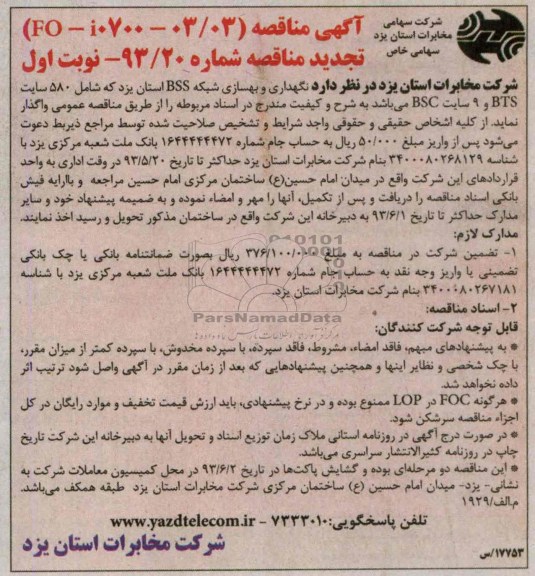 شرکت سهامی
مخابرات استان یزد
سهامی خاص
آگهی مناقصه (۰۳/۰۳ – FO – i۰۷۰۰)
تجدید مناقصه شماره ۹۳/۲۰- نوبت اول
شرکت مخابرات استان یزد در نظر دارد نگهداری و بهسازی شبکه BSS استان یزد که شامل ۵۸۰ سایت
BTS و ۹ سایت BSC می‌باشد به شرح و کیفیت مندرج در اسناد مربوطه را از طریق مناقصه عمومی واگذار
نماید. از کلیه اشخاص حقیقی و حقوقی واجد شرایط و تشخیص صلاحیت شده توسط مراجع ذیربط دعوت
می‌شود پس از واریز مبلغ ۵۰/۰۰۰ ریال به حساب جام شماره ۱۶۴۴۴۴۴۴۷۲ بانک ملت شعبه مرکزی یزد با
شناسه ۳۴۰۰۰۸۰۲۶۸۱۲۹ بنام شرکت مخابرات استان یزد حداکثر تا تاریخ ۹۳/۵/۲۰ در وقت اداری به واحد
قراردادهای این شرکت واقع در میدان امام حسین(ع) ساختمان مرکزی امام حسین مراجعه و باارایه فیش
بانکی اسناد مناقصه را دریافت و پس از تکمیل، آنها را مهر و امضاء نموده و به ضمیمه پیشنهاد خود و سایر
مدارک حداکثر تا تاریخ ۹۳/۶/۱ به دبیرخانه این شرکت واقع در ساختمان مذکور تحویل و رسید اخذ نمایند.
مدارک لازم:
۱- تضمین شرکت در مناقصه به مبلغ ۳۷۶/۱۰۰/۰۰۰ ریال بصورت ضمانتنامه بانکی یا چک بانکی
تضمینی یا واریز وجه نقد به حساب جام شماره ۱۶۴۴۴۴۴۴۷۲ بانک ملت شعبه مرکزی یزد با شناسه
۳۴۰۰۰۸۰۲۶۷۱۸۱ بنام شرکت مخابرات استان یزد.
ParsNamadData
۲- اسناد مناقصه:
قابل توجه شرکت کنندگان:
* به پیشنهادهای مبهم، فاقد امضاء، مشروط، فاقد سپرده، با سپرده مخدوش، با سپرده کمتر از میزان مقرر،
با چک شخصی و نظایر اینها و همچنین پیشنهادهایی که بعد از زمان مقرر در آگهی واصل شود ترتیب اثر
داده نخواهد شد.
* هرگونه FOC در LOP ممنوع بوده و در نرخ پیشنهادی، باید ارزش قیمت تخفیف و موارد رایگان در کل
اجزاء مناقصه سرشکن شود.
* در صورت درج آگهی در روزنامه استانی ملاک زمان توزیع اسناد و تحویل آنها به دبیرخانه این شرکت تاریخ
چاپ در روزنامه کثیرالانتشار سراسری می‌باشد.
* این مناقصه دو مرحله‌ای بوده و گشایش پاکت‌ها در تاریخ ۹۳/۶/۲ در محل کمیسیون معاملات شرکت به
نشانی- یزد- میدان امام حسین (ع) ساختمان مرکزی شرکت مخابرات استان یزد طبقه همکف می‌باشد.
م‌الف/۱۹۲۹
تلفن پاسخگویی: ۷۲۳۳۰۱۰ - www.yazdtelecom.ir
شرکت مخابرات استان یزد
۱۷۷۵۳/س